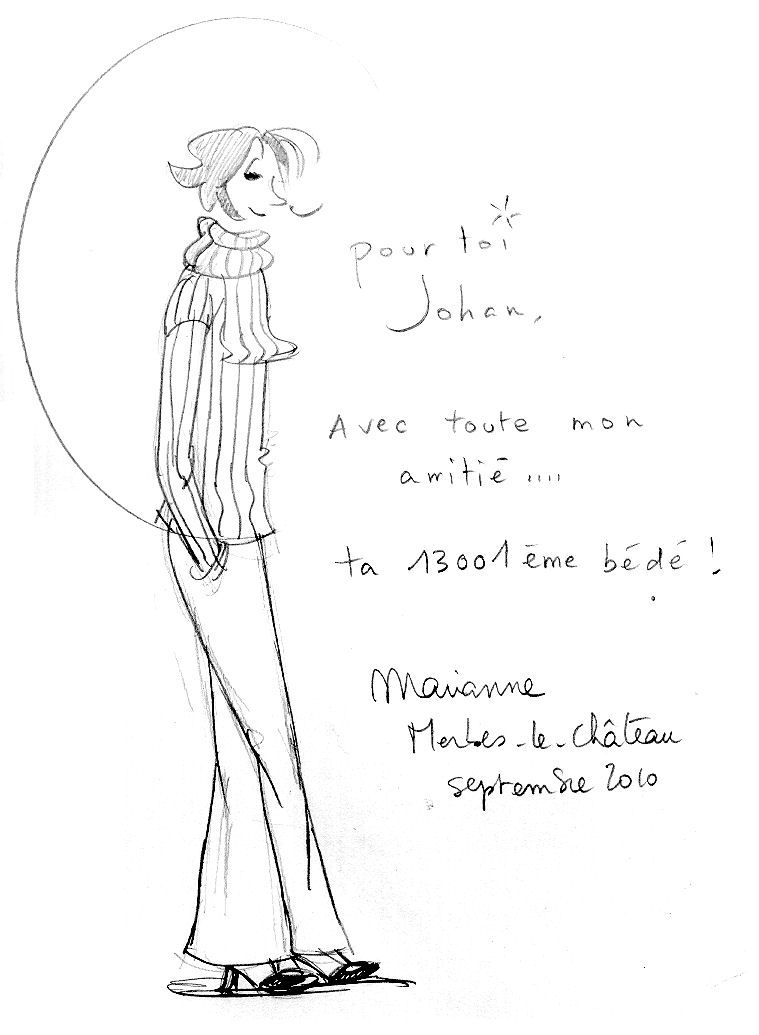 pour toi
Johan,
Avec toute mon
amitié ....
ta 13001ème bédé !
Marianne
Merbes-le-Château
septembre 2010